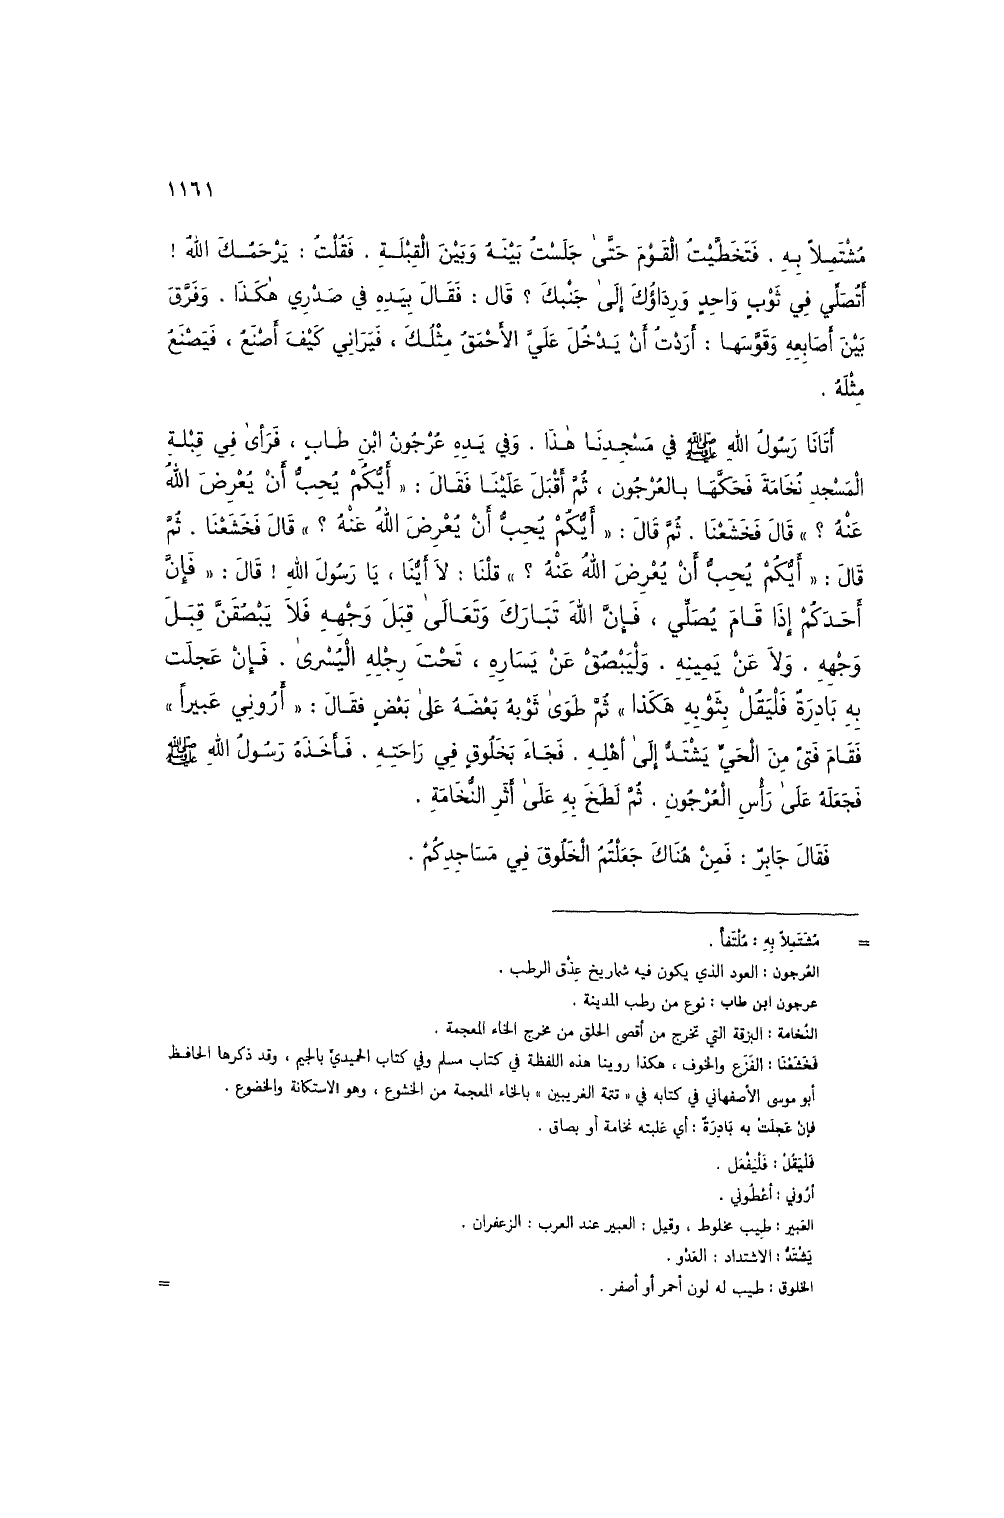 ١١٦١
مُشْتَمِلاً بِهِ . فَتَخَطَّيْتُ الْقَوْمَ حَتَّىٰ جَلَسْتُ بَيْنَهُ وَبَيْنَ الْقِبْلَةِ . فَقُلْتُ : يَرْحَمُكَ اللهُ !
أَتُصَلِّي فِي ثَوْبٍ وَاحِدٍ وَرِدَاؤُكَ إِلَىٰ جَنْبِكَ ؟ قَال : فَقَالَ بِيَدِهِ فِي صَدْرِي هٰكَذَا . وَفَرَّقَ
بَيْنَ أَصَابِعِهِ وَقَوَّسَهَا : أَرَدْتُ أَنْ يَدْخُلَ عَلَيَّ الأَحْمَقُ مِثْلُكَ ، فَيَرَانِي كَيْفَ أَصْنَعُ ، فَيَصْنَعُ
مِثْلَهُ .
أَتَانَا رَسُولُ اللهِ ﷺ فِي مَسْجِدِنَا هٰذَا . وَفِي يَدِهِ عُرْجُونُ ابْنِ طَابٍ ، فَرَأَىٰ فِي قِبْلَةِ
الْمَسْجِدِ نُخَامَةً فَحَكَّهَا بِالعُرْجُونِ ، ثُمَّ أَقْبَلَ عَلَيْنَا فَقَالَ : « أَيُّكُمْ يُحِبُّ أَنْ يُعْرِضَ اللهُ
عَنْهُ ؟ » قَالَ فَخَشَعْنَا . ثُمَّ قَالَ : « أَيُّكُمْ يُحِبُّ أَنْ يُعْرِضَ اللهُ عَنْهُ ؟ » قَالَ فَخَشَعْنَا . ثُمَّ
قَالَ : « أَيُّكُمْ يُحِبُّ أَنْ يُعْرِضَ اللهُ عَنْهُ ؟ » قلْنَا : لاَ أَيُّنَا ، يَا رَسُولَ اللهِ ! قَالَ : « فَإِنَّ
أَحَدَكُمْ إِذَا قَامَ يُصَلِّي ، فَإِنَّ اللهَ تَبَارَكَ وَتَعَالَىٰ قِبَلَ وَجْهِهِ فَلاَ يَبْصُقَنَّ قِبَلَ
وَجْهِهِ . وَلاَ عَنْ يَمِينِهِ . وَلْيَبْصُقْ عَنْ يَسَارِهِ ، تَحْتَ رِجْلِهِ الْيُسْرىٰ . فَإِنْ عَجِلَت
بِهِ بَادِرَةٌ فَلْيَقُلْ بِثَوْبِهِ هَكَذا » ثُمَّ طَوَىٰ ثَوْبهُ بَعْضَهُ عَلىٰ بَعْضٍ فقَالَ : « أَرُونِي عَبيراً »
فَقَامَ فَتىً مِنَ الْحَيِّ يَشْتَدُّ إِلَىٰ أهْلِهِ . فَجَاءَ بَخَلُوقٍ فِي رَاحَتِهِ . فَأَخَذَهُ رَسُولُ اللهِ ﷺ
فَجَعَلَهُ عَلَىٰ رَأْسِ الْعُرْجُونِ . ثُمَّ لَطَخَ بِهِ عَلَىٰ أَثَرِ النُّخَامَةِ .
فَقَالَ جَابِرٌ : فَمِنْ هُنَاكَ جَعَلْتُمُ الْخَلُوقَ فِي مَسَاجِدِكُمْ .
= مُشْتَمِلاً بِهِ : مُلْتَفاً .
العُرجون : العود الذي يكون فيه شماريخ عِذْق الرطب .
عرجون ابن طاب : نوع من رطب المدينة .
النُخامة : البزقة التي تخرج من أقصى الحلق من مخرج الخاء المعجمة .
فَخَشَعْنَا : الفَزَع والخوف ، هكذا روينا هذه اللفظة في كتاب مسلم وفي كتاب الحميديّ بالجيم ، وقد ذكرها الحافظ
أبو موسى الأصفهاني في كتابه في « تتمة الغريبين » بالخاء المعجمة من الخشوع ، وهو الاستكانة والخضوع .
فإنْ عَجِلَتْ به بَادِرَةٌ : أي غلبته نخامة أو بصاق .
فَلْيَقُلْ : فَلْيَفْعَل .
أرُوني : أعْطُوني .
العَبير : طيب مخلوط ، وقيل : العبير عند العرب : الزعفران .
يَشْتَدُّ : الاشتداد : العَدْو .
الخلوق : طيب له لون أحمر أو أصفر . =